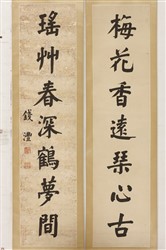 梅花香遠琹心古
瑤艸春深鶴夢間
錢灃